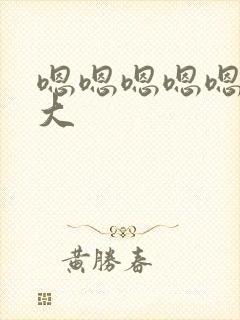 嗯嗯嗯嗯嗯
大
黄勝春